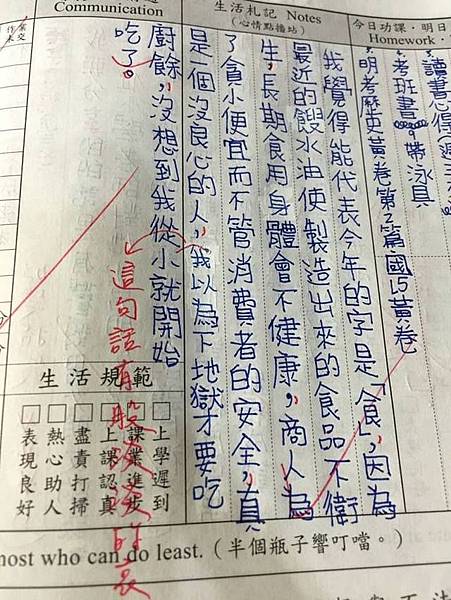 Communication
生活札記 Notes
(心情點播站)
今日功課・明日
Homework・
讀書心得
・考班書 帶泳具
・明考歷史黃卷第2篇國L5黃卷
我覺得能代表今年的字是「食」,因為
最近的餿水油使製造出來的食品不衛
生,長期食用身體會不健康,商人為
了貪小便宜而不管消費者的安全,真
是一個沒良心的人,我以為下地獄才要吃
廚餘,沒想到我從小就開始
吃了。
這句話有股淡淡的哀
生活規範
上學遲到
課業進步
上課認真
盡責打掃
熱心助人
表現良好
most who can do least. (半個瓶子響叮噹。)